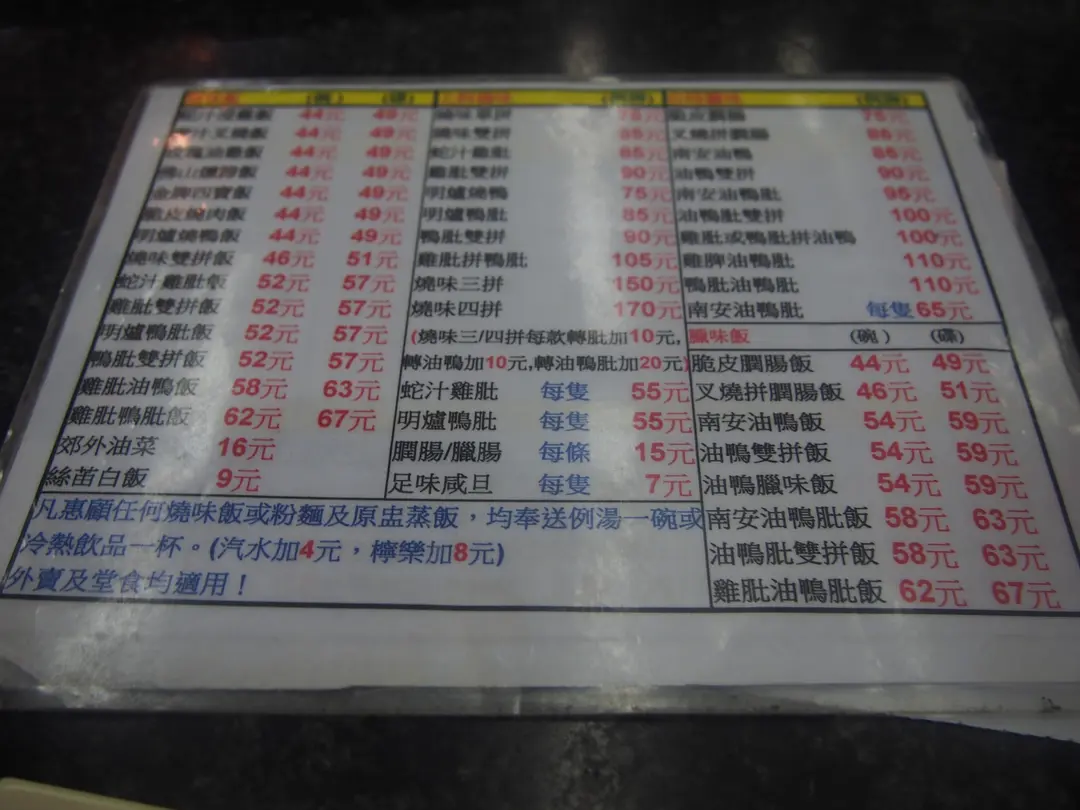 (碗) (碟)
汁叉燒飯 44元 49元
玫瑰油雞飯 44元 49元
佛山燻蹄飯 44元 49元
金牌四寶飯 44元 49元
脆皮燒肉飯 44元 49元
明爐燒鴨飯 44元 49元
燒味雙拼飯 46元 51元
蛇汁雞肶飯 52元 57元
雞肶雙拼飯 52元 57元
明爐鴨肶飯 52元 57元
鴨肶雙拼飯 52元 57元
雞肶油鴨飯 58元 63元
雞肶鴨肶飯 62元 67元
郊外油菜 16元
絲苗白飯 9元
燒味雙拼 85元
蛇汁雞肶 85元
雞肶雙拼 90元
明爐燒鴨 75元
明爐鴨肶 85元
鴨肶雙拼 90元
雞肶拼鴨肶 105元
燒味三拼 150元
燒味四拼 170元
(燒味三/四拼每款轉肶加10元,
轉油鴨加10元,轉油鴨肶加20元)
蛇汁雞肶 每隻 55元
明爐鴨肶 每隻 55元
膶腸/臘腸 每條 15元
足味咸旦 每隻 7元
脆皮膶腸 75元
叉燒拼膶腸 85元
南安油鴨 85元
油鴨雙拼 90元
南安油鴨肶 95元
油鴨肶雙拼 100元
雞肶或鴨肶拼油鴨 100元
雞脾油鴨肶 110元
鴨肶油鴨肶 110元
南安油鴨肶 每隻65元
臘味飯 (碗) (碟)
脆皮膶腸飯 44元 49元
叉燒拼膶腸飯 46元 51元
南安油鴨飯 54元 59元
油鴨雙拼飯 54元 59元
油鴨臘味飯 54元 59元
南安油鴨肶飯 58元 63元
油鴨肶雙拼飯 58元 63元
雞肶油鴨肶飯 62元 67元
凡惠顧任何燒味飯或粉麵及原盅蒸飯，均奉送例湯一碗或
冷熱飲品一杯。(汽水加4元，檸樂加8元)
外賣及堂食均適用！